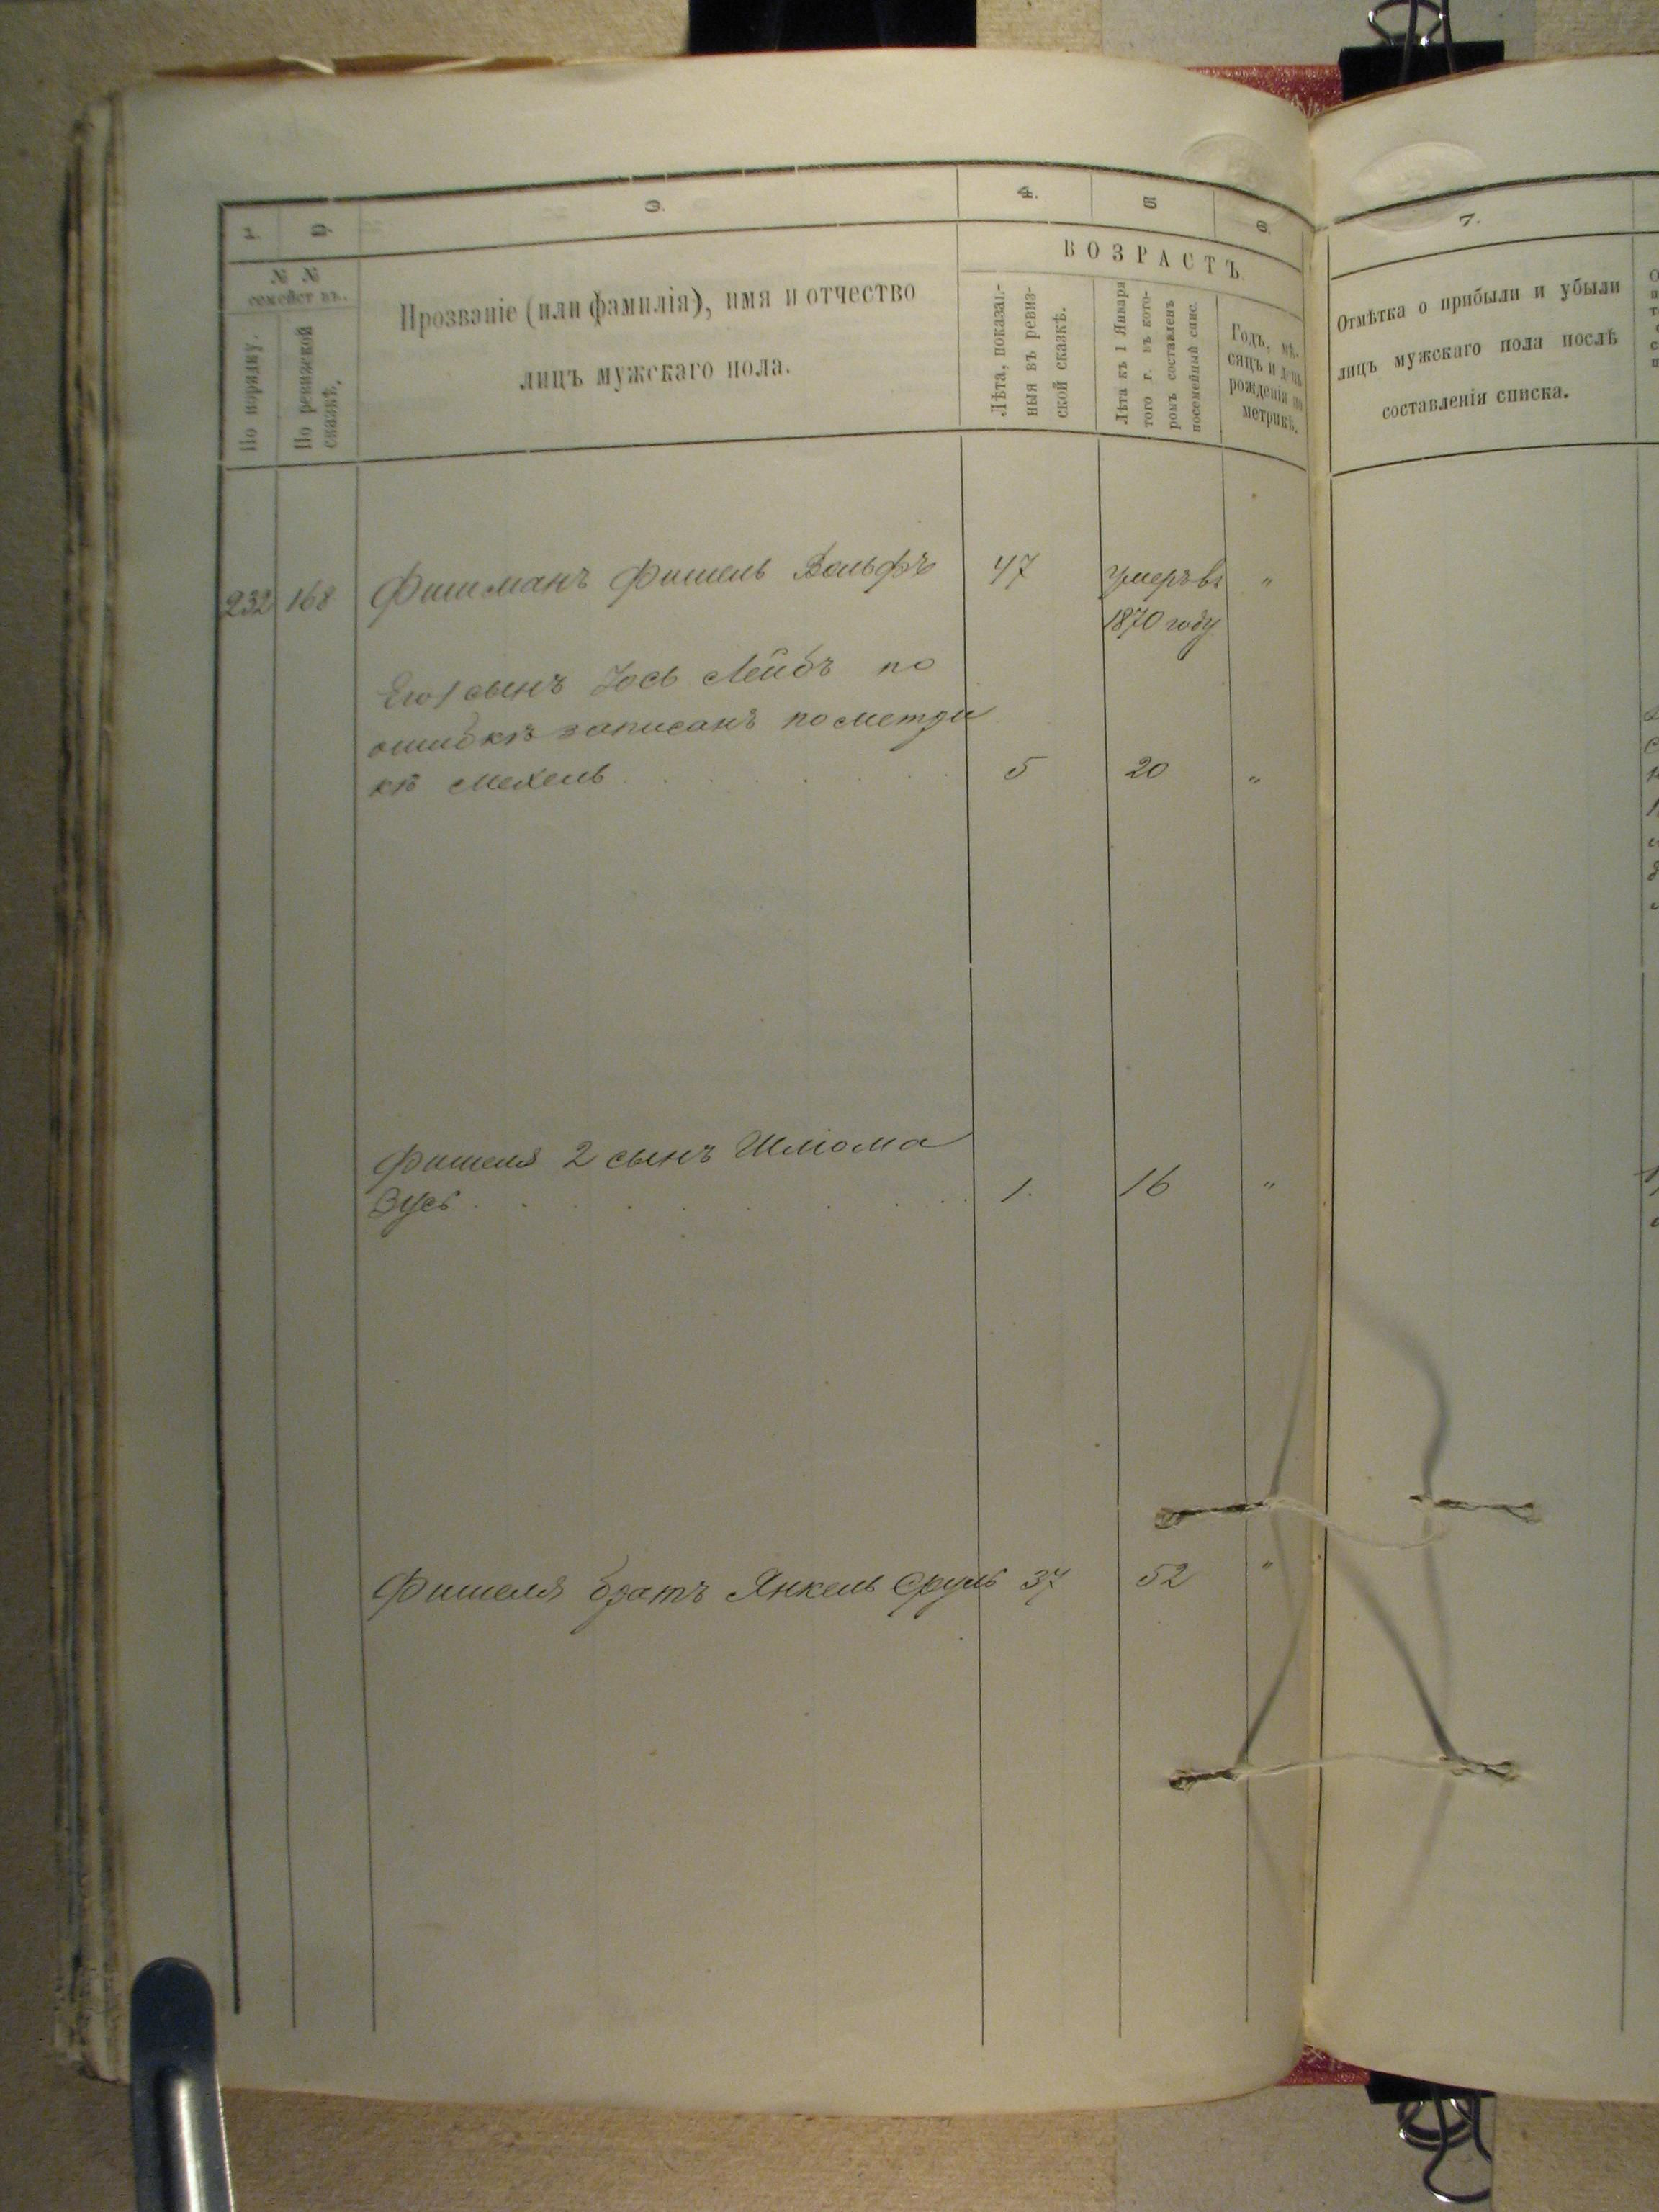 1. 2. 3. 4. 5 6. 7.
№ №
семействъ.
По порядку.
По ревизской
сказкѣ.
Прозваніе (или фамилія), имя и отчество
лицъ мужскаго пола.
ВОЗРАСТЪ.
Лѣта, показан-
ныя въ ревиз-
ской сказкѣ.
Лѣта къ 1 Января
того г. въ кото-
ромъ составленъ
посемейный спис.
Годъ, мѣ-
сяцъ и день
рожденія по
метрикѣ.
Отмѣтка о прибыли и убыли
лицъ мужскаго пола послѣ
составленія списка.
232 168 Фишманъ Фишель Вольфъ 47 умеръ въ "
1870 году
Его 1 сынъ Іось Лейбъ по
ошибкѣ записанъ по метри
кѣ Мехель 5 20 "
Фишеля 2 сынъ Шліома
Зусь 1. 16 "
Фишеля братъ Янкель Сруль 37 52 "